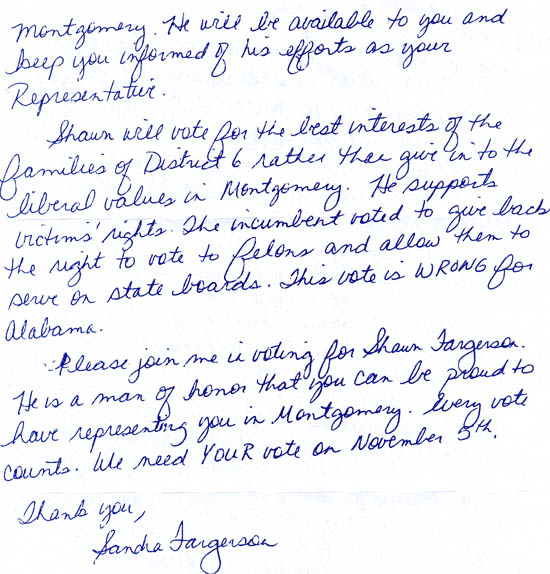 Montgomery. He will be available to you and
keep you informed of his efforts as your
Representative.
Shaun will vote for the best interests of the
families of District 6 rather than give in to the
liberal values in Montgomery. He supports
victims' rights. The incumbent voted to give back
the right to vote to felons and allow them to
serve on state boards. This vote is WRONG for
Alabama.
Please join me in voting for Shaun Fargerson.
He is a man of honor that you can be proud to
have representing you in Montgomery. Every vote
counts. We need YOUR vote on November 5th.
Thank you,
Sandra Fargerson